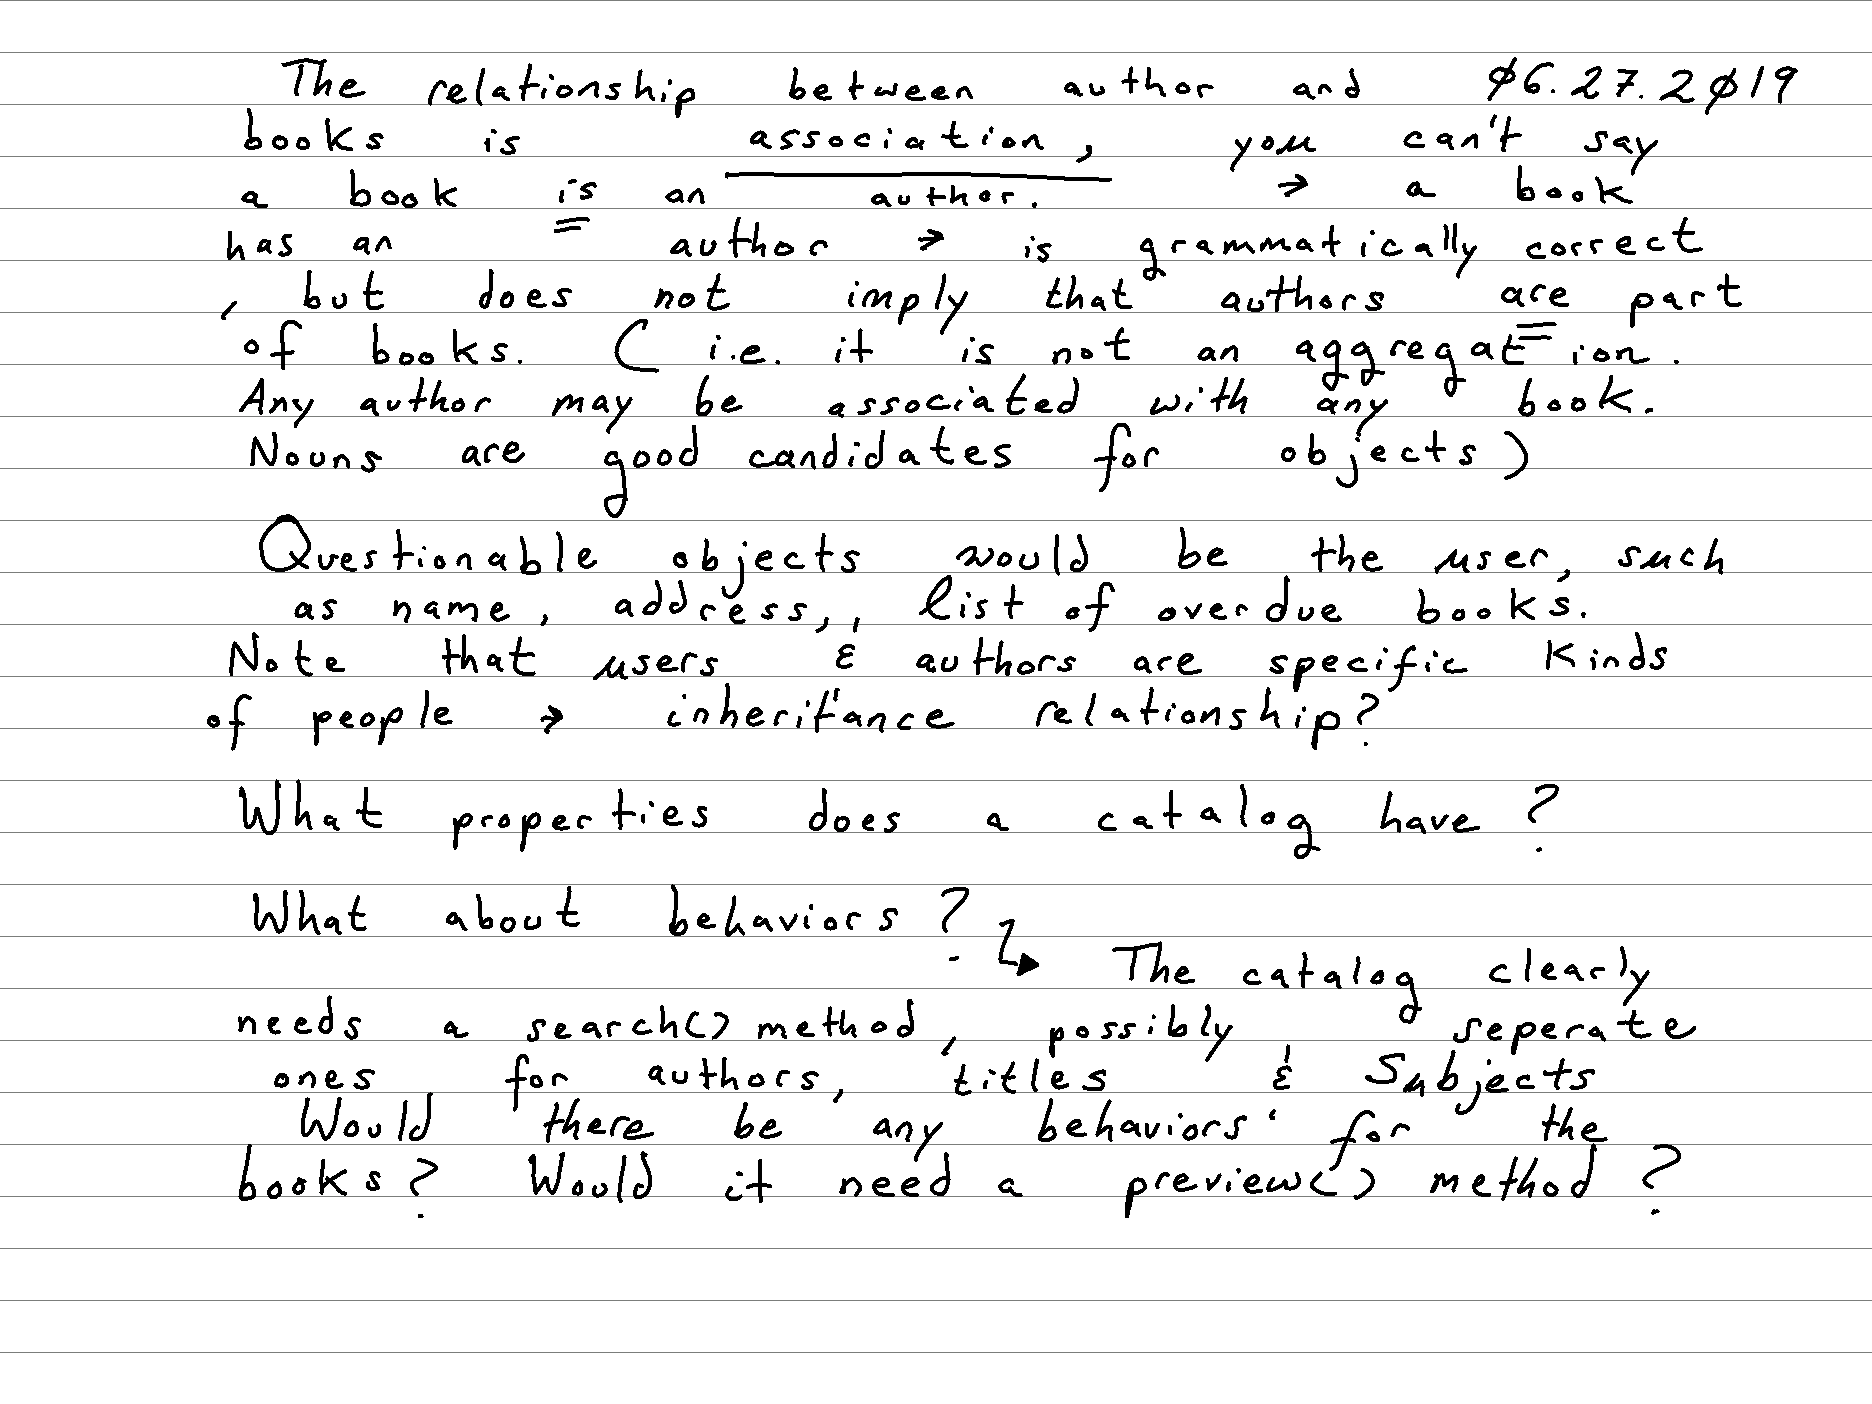 The relationship between author and 06.27.2019
books is association, you can't say
a book is an author. → a book
has an author → is grammatically correct
, but does not imply that authors are part
of books. ( i.e. it is not an aggregation.
Any author may be associated with any book.
Nouns are good candidates for objects)
Questionable objects would be the user, such
as name, address,, list of overdue books.
Note that users & authors are specific kinds
of people → inheritance relationship?
What properties does a catalog have ?
What about behaviors ?
↳ The catalog clearly
needs a search() method, possibly seperate
ones for authors, titles & Subjects
Would there be any behaviors for the
books? Would it need a preview() method ?